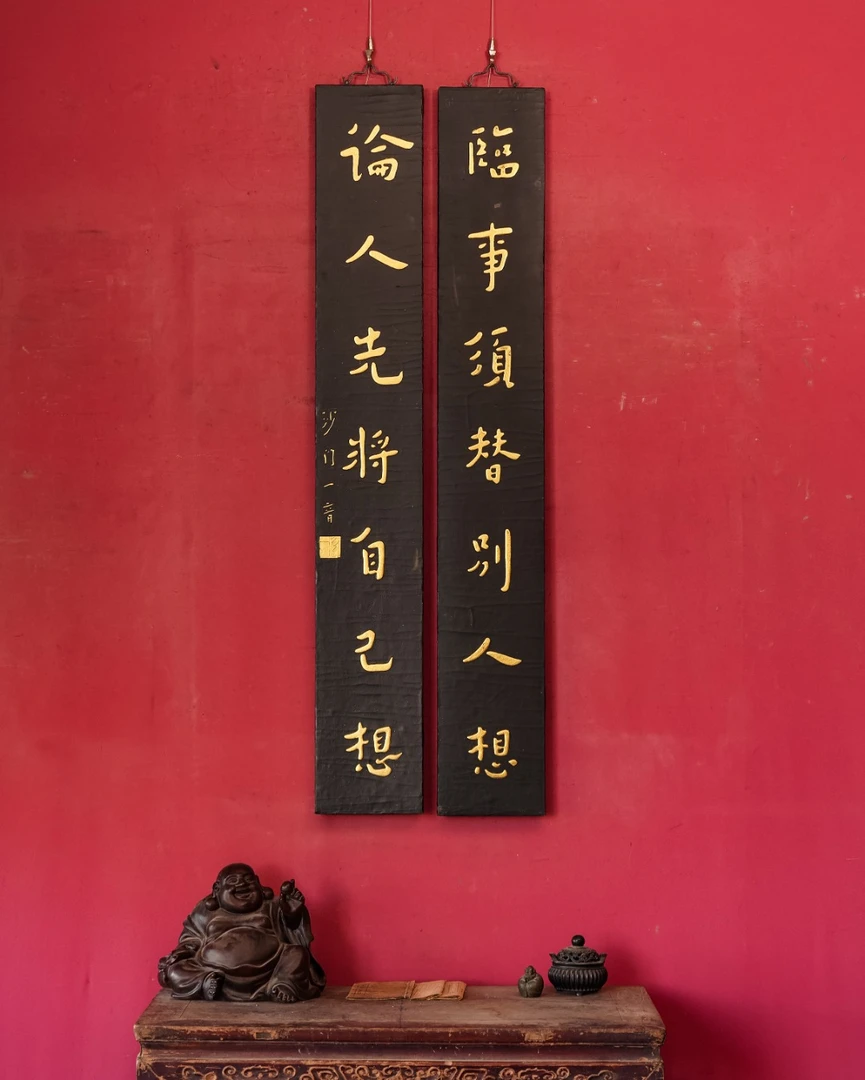 臨事須替別人想
論人先將自己想
沙门一音